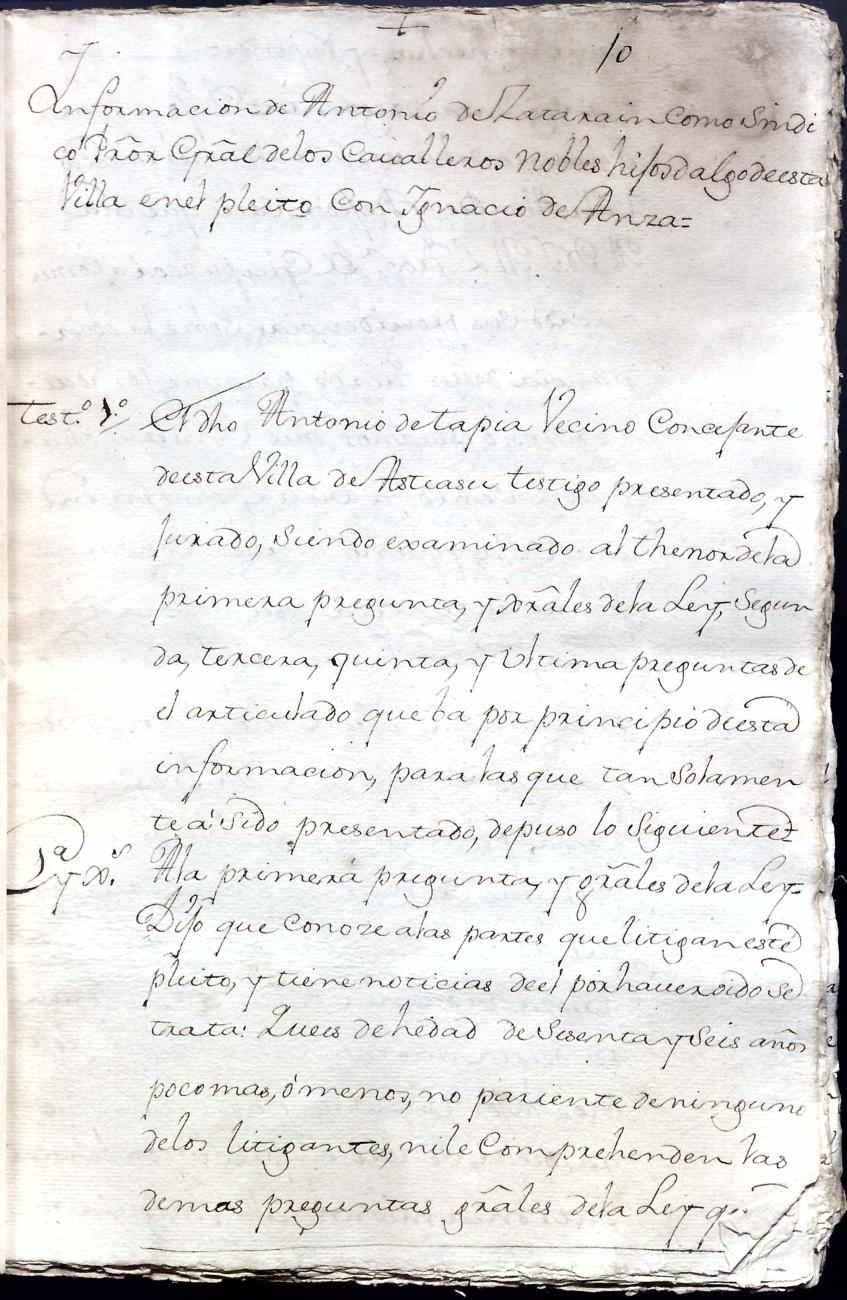 10
Informacion de Antonio de Zatarain como Sindi
co Prõr Grãl de los Cavalleros nobles hijosdalgo de esta
Villa en el pleito Con Ygnacio de Anza=
test.º 1.º El dho Antonio de tapia Vecino Concejante
de esta Villa de Asteasu testigo presentado, y
Jurado, siendo examinado al thenor de la
primera pregunta, y grãles de la Ley, Segun
da, tercera, quinta, y Ultima preguntas de
el articulado que ba por principio de esta
informacion, para las que tan Solamen
te á sido presentado, depuso lo Siguiente=
1ª y g.s A la primera pregunta, y grãles de la Ley=
Dijo que Conoze a las partes que litigan este
pleito, y tiene noticias de el por haver oido se
trata: Que es de hedad de Sesenta y Seis años
poco mas, ó menos, no pariente de ninguno
de los litigantes, ni le Comprehenden las
demas preguntas grãles de la Ley